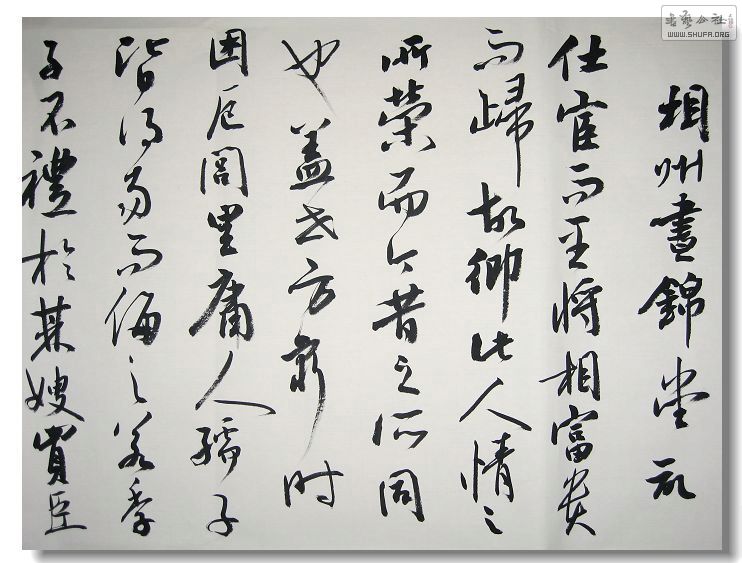 相州晝錦堂記
仕宦而至将相富贵
而歸故鄉此人情之
所榮而今昔之所同
也蓋士方窮时
困厄閭里庸人孺子
皆得易而侮之若季
子不禮於其嫂買臣
书艺公社
WWW.SHUFA.ORG